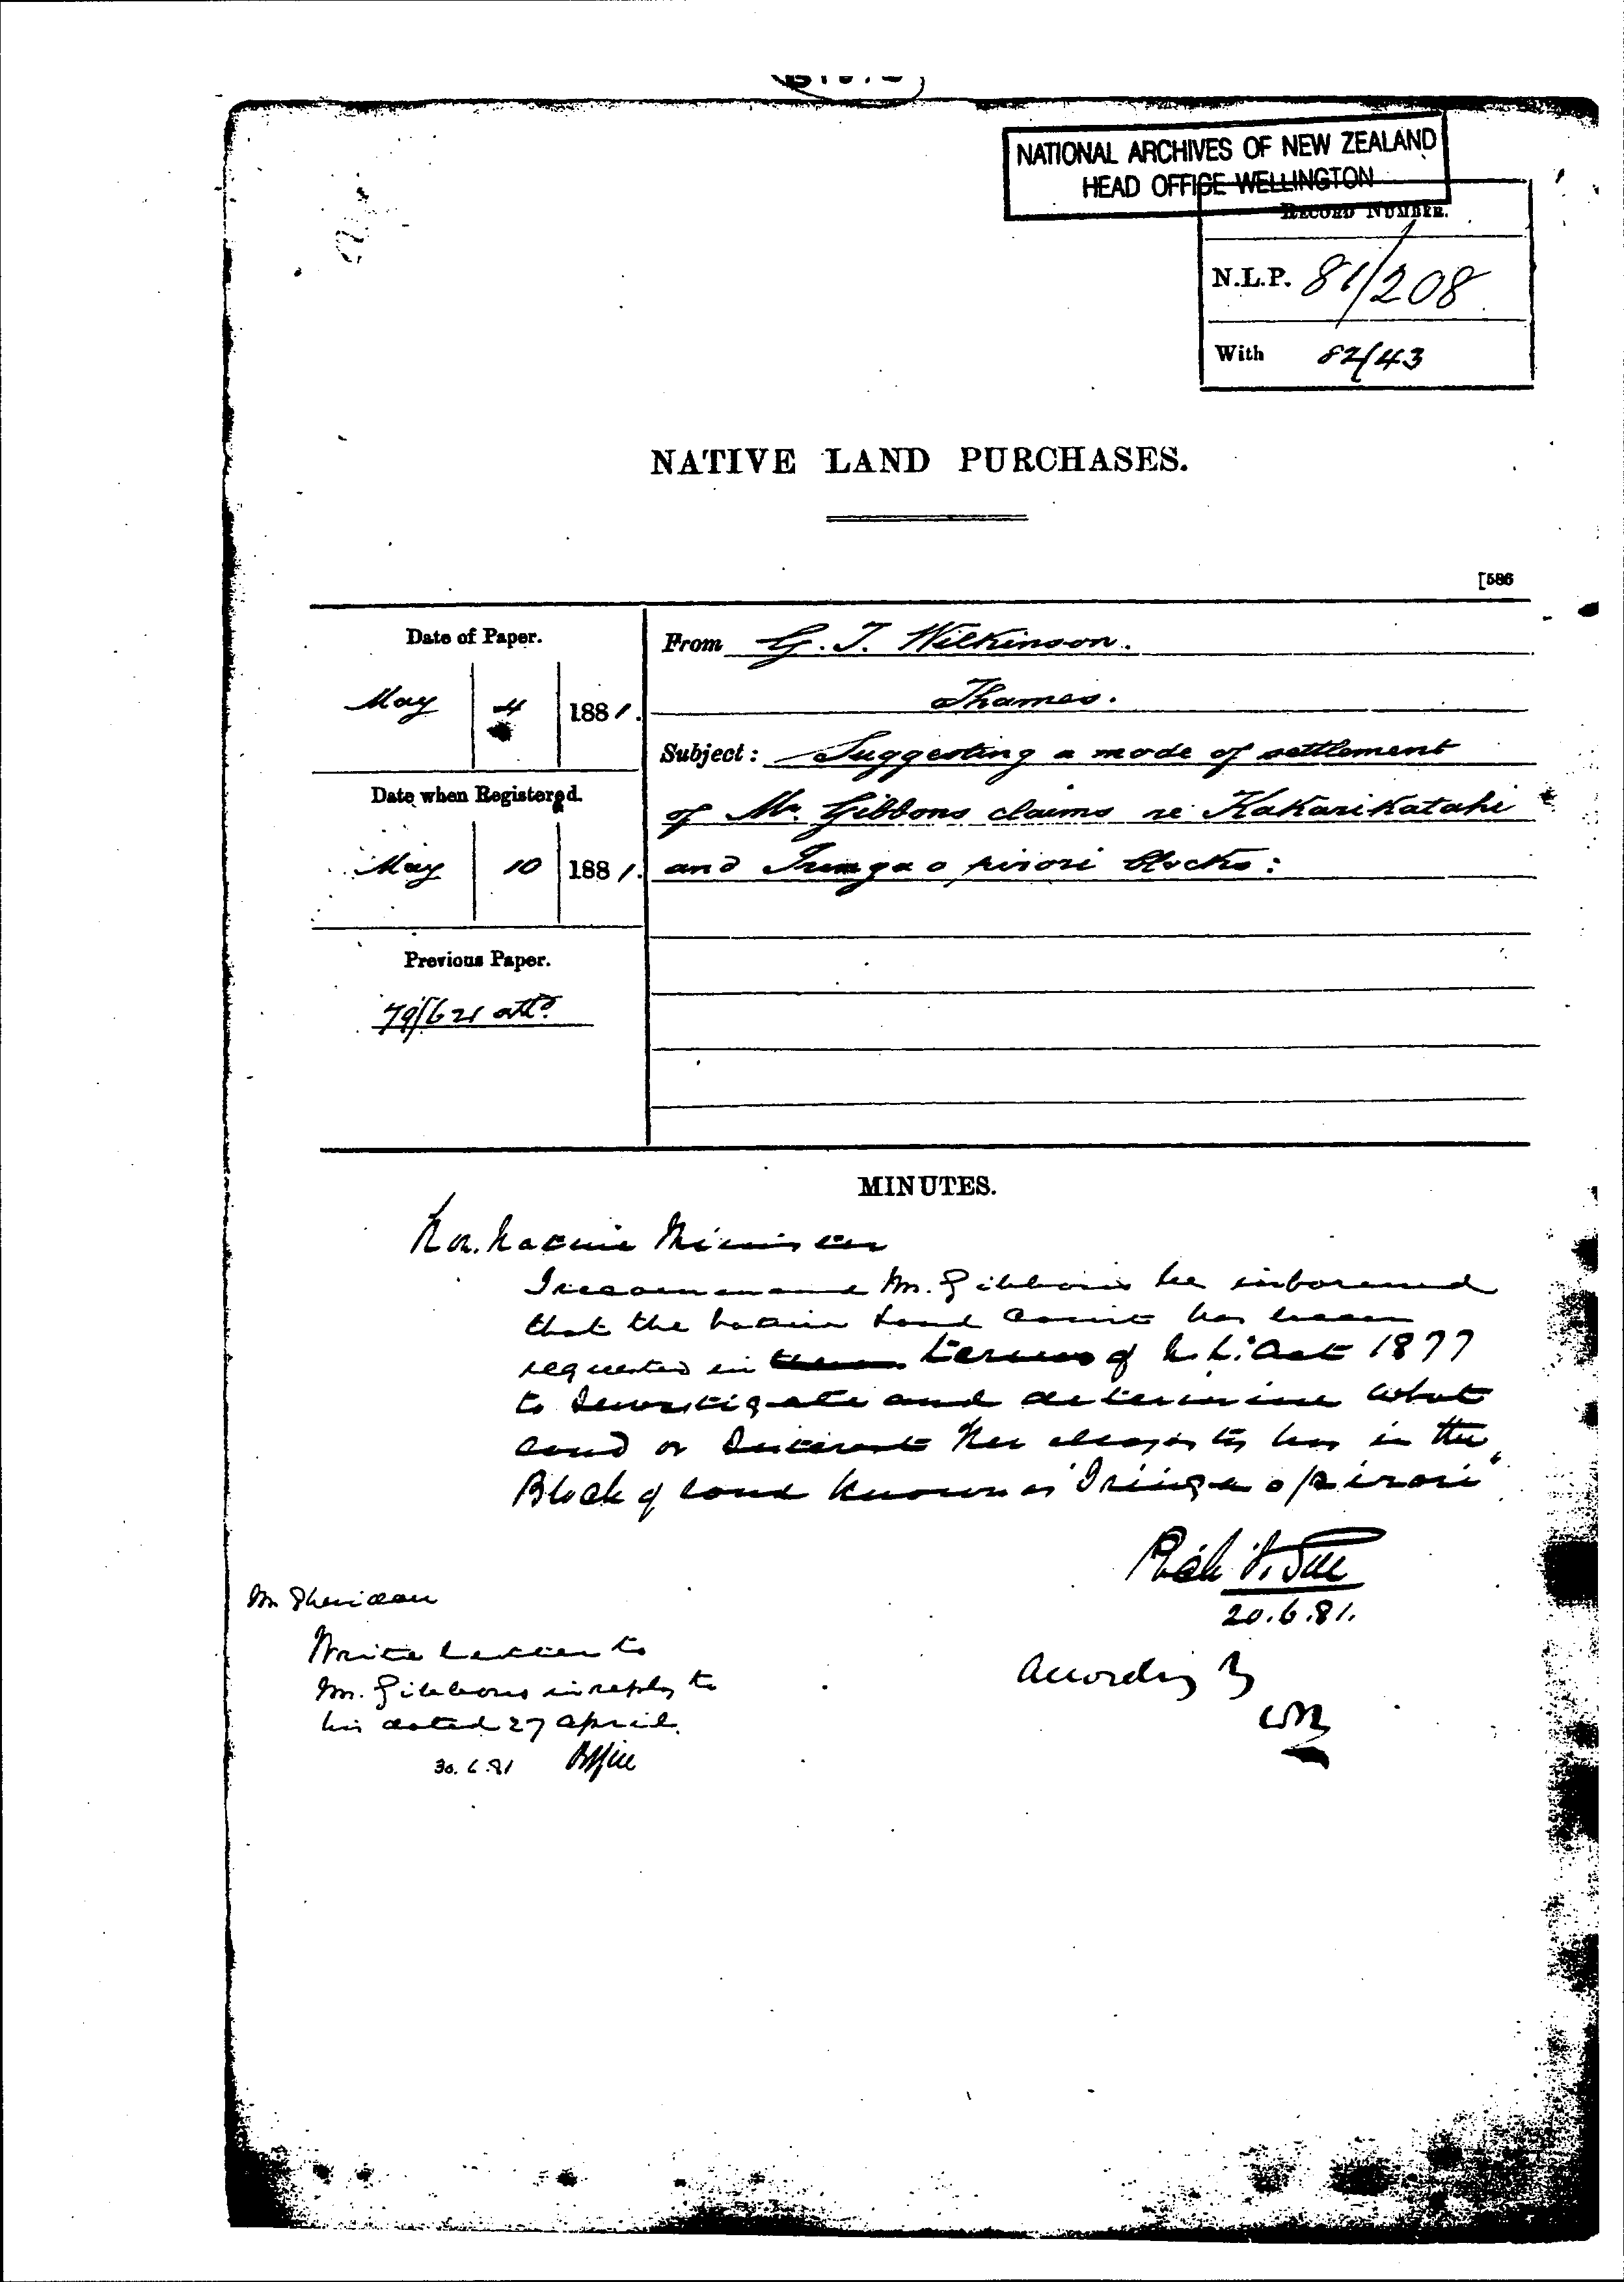 NATIONAL ARCHIVES OF NEW ZEALAND
HEAD OFFICE WELLINGTON
RECORD NUMBER.
N.L.P. 81/208
With 82/43
NATIVE LAND PURCHASES.
[586
Date of Paper.
May 4 1881.
Date when Registered.
May 10 1881.
Previous Paper.
79/621 attd
From G. T. Wilkinson.
Thames.
Subject: Suggesting a mode of settlement
of Mr. Gibbons claims re Kakarikatahi
and Iringa o pirori blocks:
MINUTES.
Hon. Native Minister
I recommend Mr. Gibbons be informed
that the Native Land Court has been
requested in terms of N. L. Act 1877
to Investigate and determine what
land or Interest Her Majesty has in the
Block of land known as "Iringa o pirori"
20.6.81.
Mr Sheridan
Write Letter to
Mr. Gibbons in reply to
his dated 27 April.
30.6.81
Accordingly